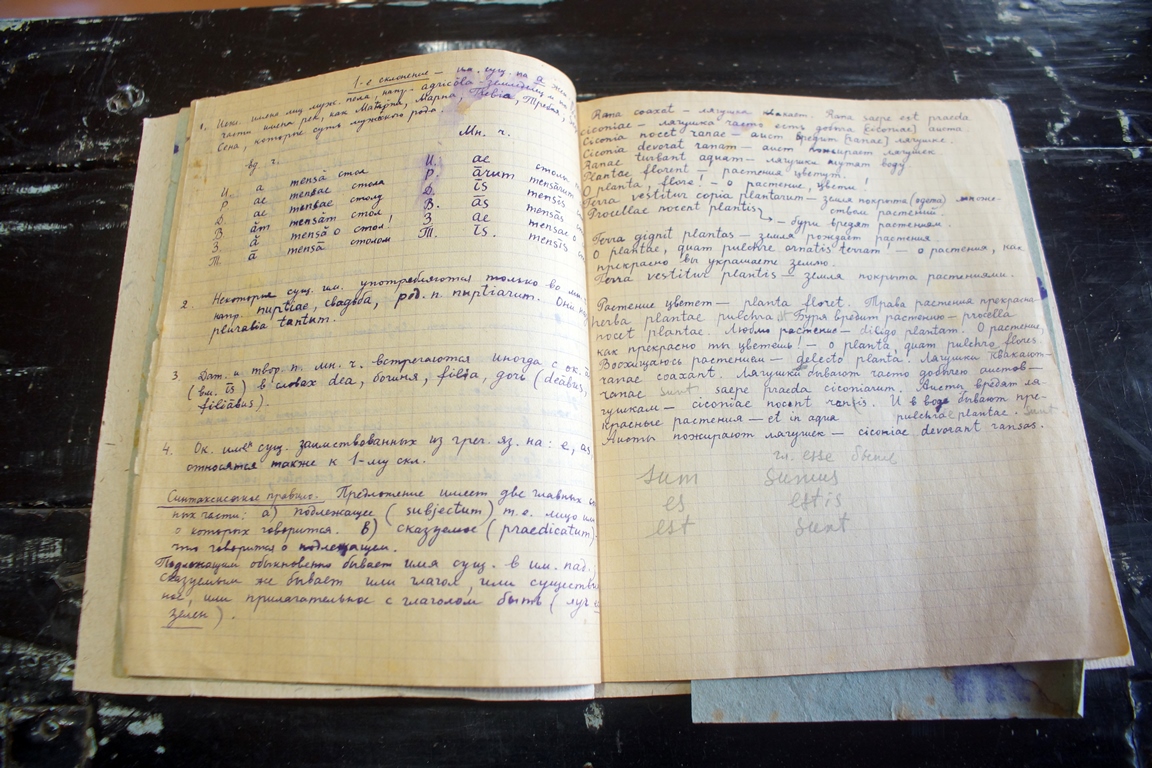 1-е склонение — им. сущ. на а
1. имена лиц муж. пола, напр. agricŏla земледелец и
части имена рек, как Матрона, Марна, Trebia, Требия,
Сена, которые суть мужского рода.
Мн. ч.
ед. ч.
И. a mensă стол И. ae столы
Р. ae mensae стола Р. ārum mensārum
Д. ae mensae столу Д. īs mensīs
В ăm mensăm стол В. ās mensās
З. ă mensă о стол! З. ae mensae о
Т. ā mensā столом Т. īs. mensīs
2. Некоторые сущ. им. употребляются только во мн.
напр. nuptiae, свадьба, род. п. nuptiarum. Они
pluralia tantum.
3. Дат. и твор. п. мн. ч. встречаются иногда с ок.
(вм. īs) в словах dea, богиня, filia, дочь (deābus,
filiābus).
4. Ок. имён сущ. заимствованных из греч. яз. на: e, as,
относятся также к 1-му скл.
Синтаксическое правило. Предложение имеет две главных
ных части: а) подлежащее (subjectum) т.е. лицо или
о которых говорится. в) сказуемое (praedicatum)
что говорится о подлежащем.
Подлежащим обыкновенно бывает имя сущ. в им. пад.
Сказуемым же бывает или глагол, или существи
ное, или прилагательное с глаголом быть (луг
зелен).
Rana coaxat — лягушка квакает. Rana saepe est praeda
ciconiae — лягушка часто есть добыча [ciconiae] аиста
Ciconia nocet ranae — аист вредит [ranae] лягушке.
Ciconia devorat ranam — аист пожирает лягушек
Ranae turbant aquam — лягушки мутят воду
Plantae florent — растения цветут.
O planta, flore! — о растение, цвети!
Terra vestitur copia plantarum — земля покрыта (одета) множе-
ством растений.
Procellae nocent plantis
— бури вредят растениям.
Terra gignit plantas — земля рождает растения.
O plantae, quam pulchre ornatis terram! — о растения, как
прекрасно вы украшаете землю.
Terra vestitur plantis — земля покрыта растениями.
Растение цветет — planta floret. Трава растения прекрасна
herba plantae pulchra Буря вредит растению — procella
nocet plantae. Люблю растение — diligo plantam. О растение,
как прекрасно ты цветешь! — o planta, quam pulchre flores
Восхищаюсь растением — delecto planta. Лягушки квакают —
ranae coaxant. Лягушки бывают часто добычею аистов —
ranae sunt saepe praeda ciconiarum. Аисты вредят ля-
гушкам — ciconiae nocent ranis. И в воде бывают пре-
красные растения — et in aqua pulchrae plantae. sunt
Аисты пожирают лягушек — ciconiae devorant ranas.
гл. esse быть
sum sumus
es estis
est sunt